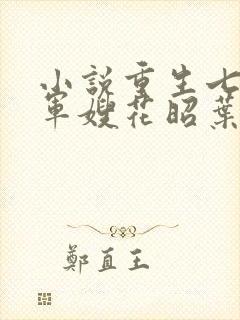 小说重生七
军嫂花昭葉
鄭直王